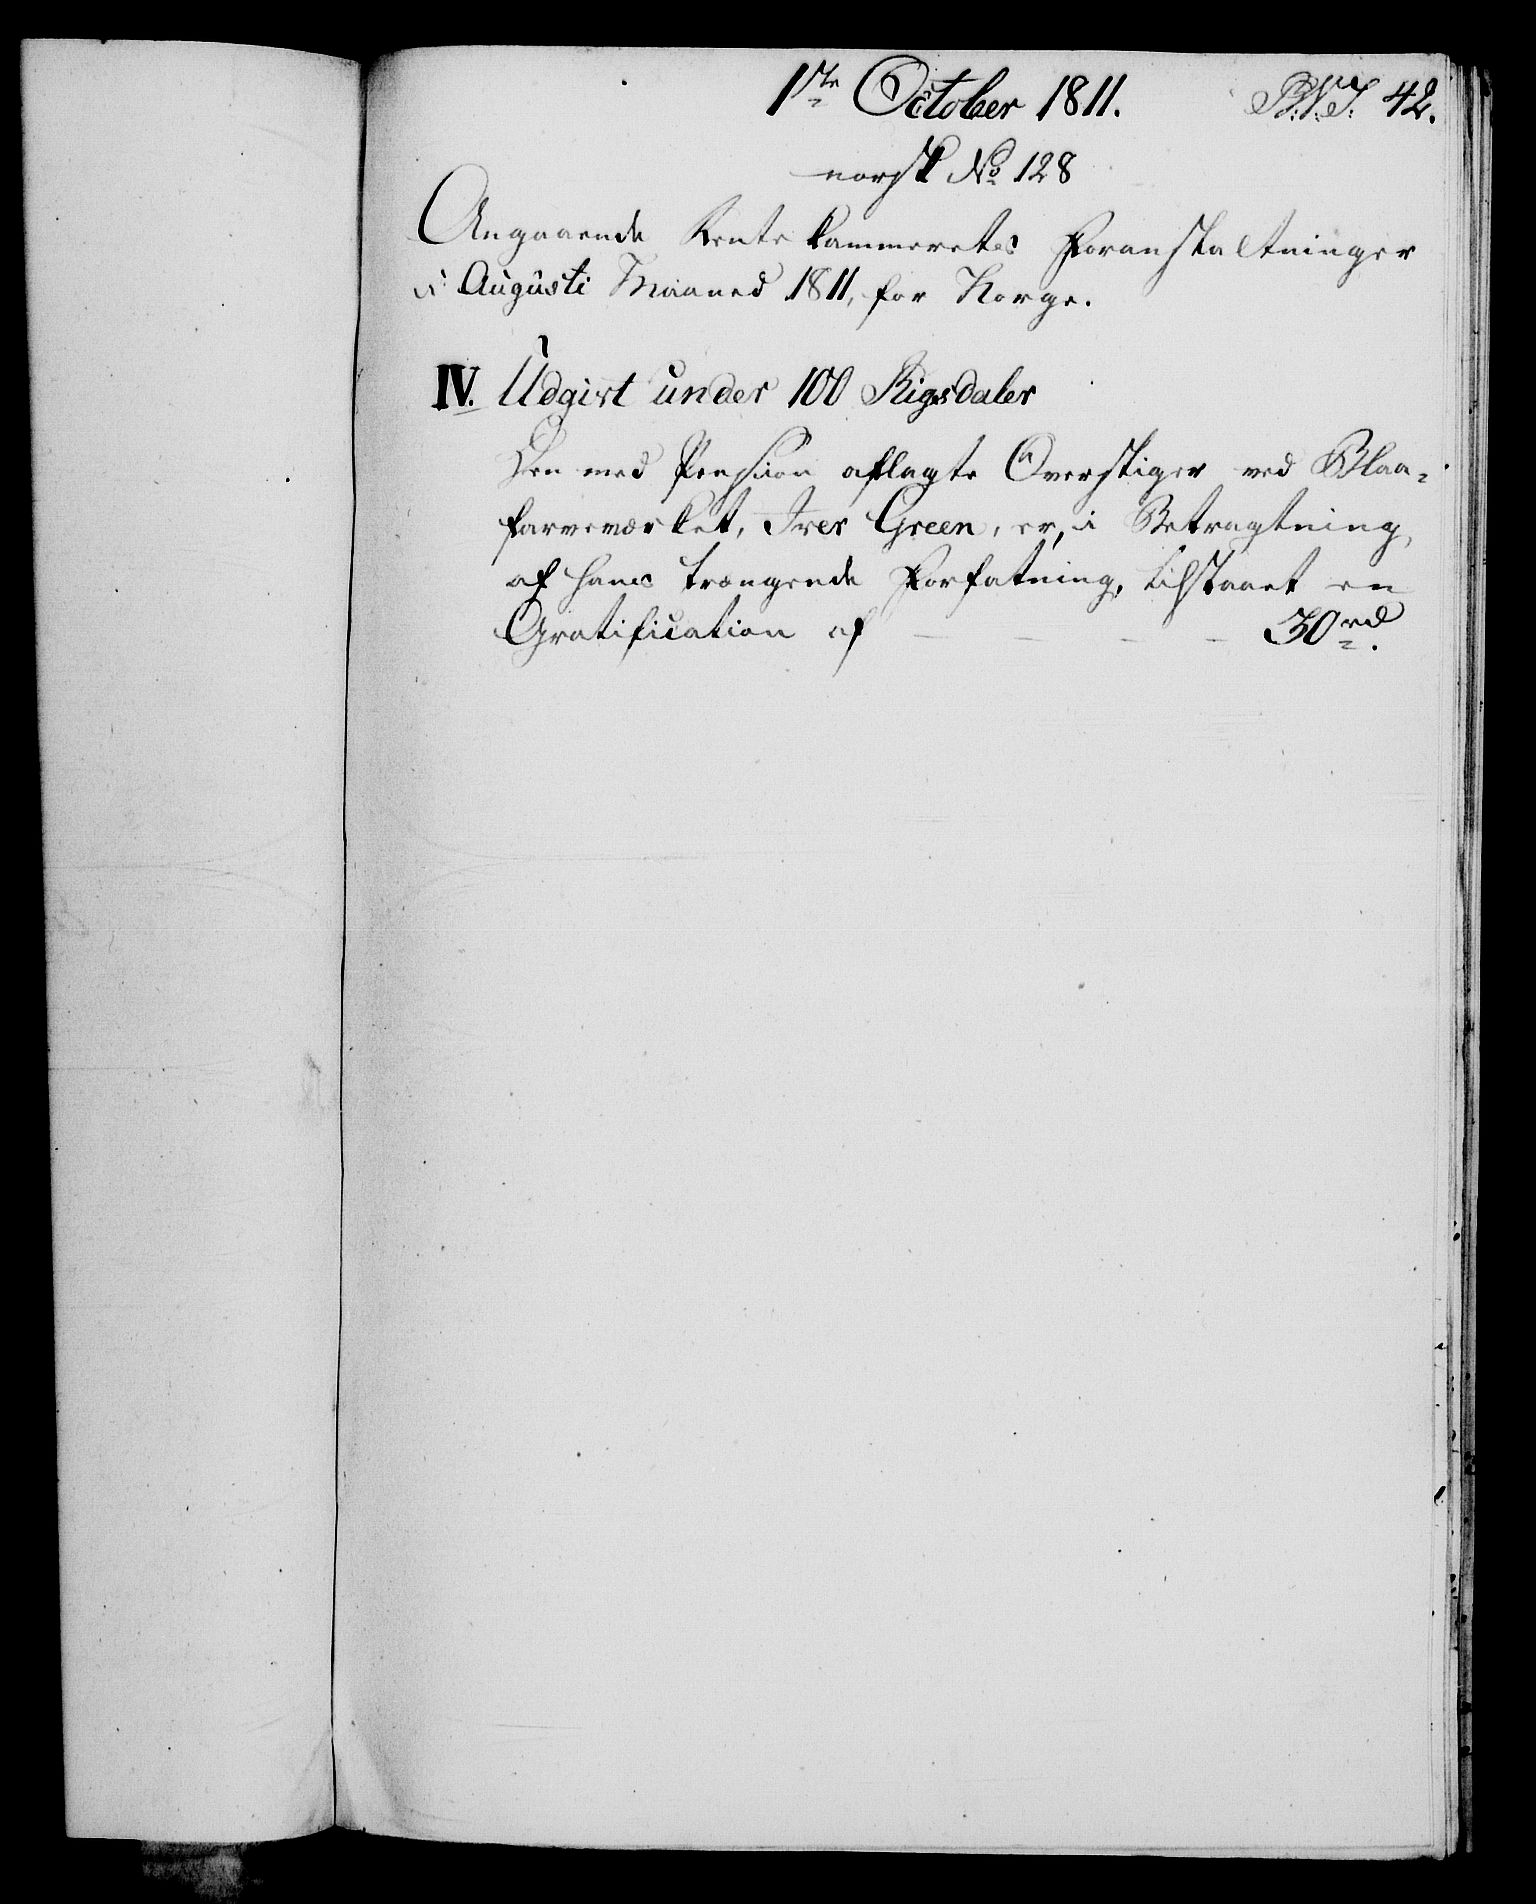 1ste October 1811. B:V:T: 42.
norsk No 128
Angaaende Rentekammerets Foranstaltninger
i Augusti Maaned 1811, for Norge.
IV. Udgivt under 100 Rigsdaler
Den med Pension aflagte Overstiger ved Blaa-
farveværket, Iver Green, er, i Betragtning
af hans trængende Forfatning, tilstaaet en
Gratification af — — — — 30rd.